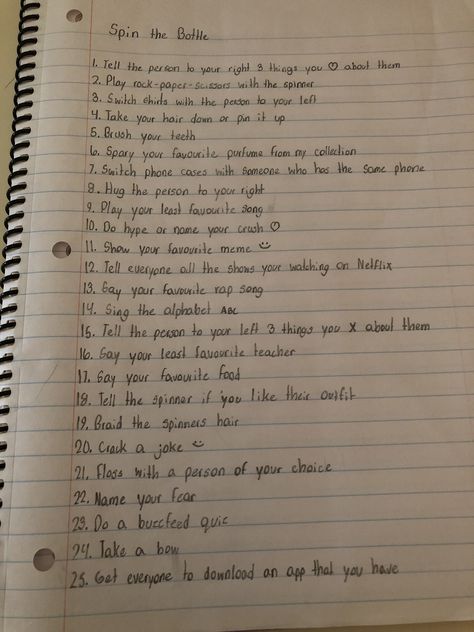 Spin the Bottle
1. Tell the person to your right 3 things you ♡ about them
2. Play rock-paper-scissors with the spinner
3. Switch shirts with the person to your left
4. Take your hair down or pin it up
5. Brush your teeth
6. Spary your favourite purfume from my collection
7. Switch phone cases with someone who has the same phone
8. Hug the person to your right
9. Play your least favourite song
10. Do hype or name your crush ♡
11. Show your favourite meme :)
12. Tell everyone all the shows your watching on Netflix
13. Say your favourite rap song
14. Sing the alphabet ABC
15. Tell the person to your left 3 things you X about them
16. Say your least favourite teacher
17. Say your favourite food
18. Tell the spinner if you like their outfit
19. Braid the spinners hair
20. Crack a joke :)
21. Floss with a person of your choice
22. Name your fear
23. Do a buzzfeed quiz
24. Take a bow
25. Get everyone to download an app that you have